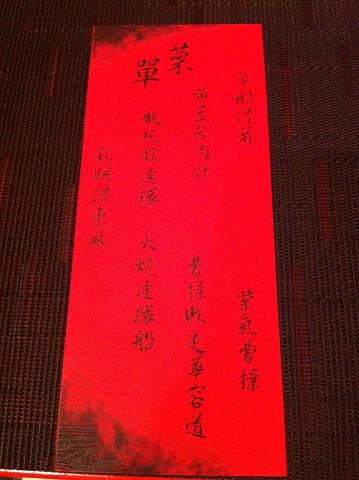 菜單
草船借箭
紫氣曹操
黃蓋苦肉計
曹操敗走華容道
龐統獻連環
火燒連環船
孔明借東風